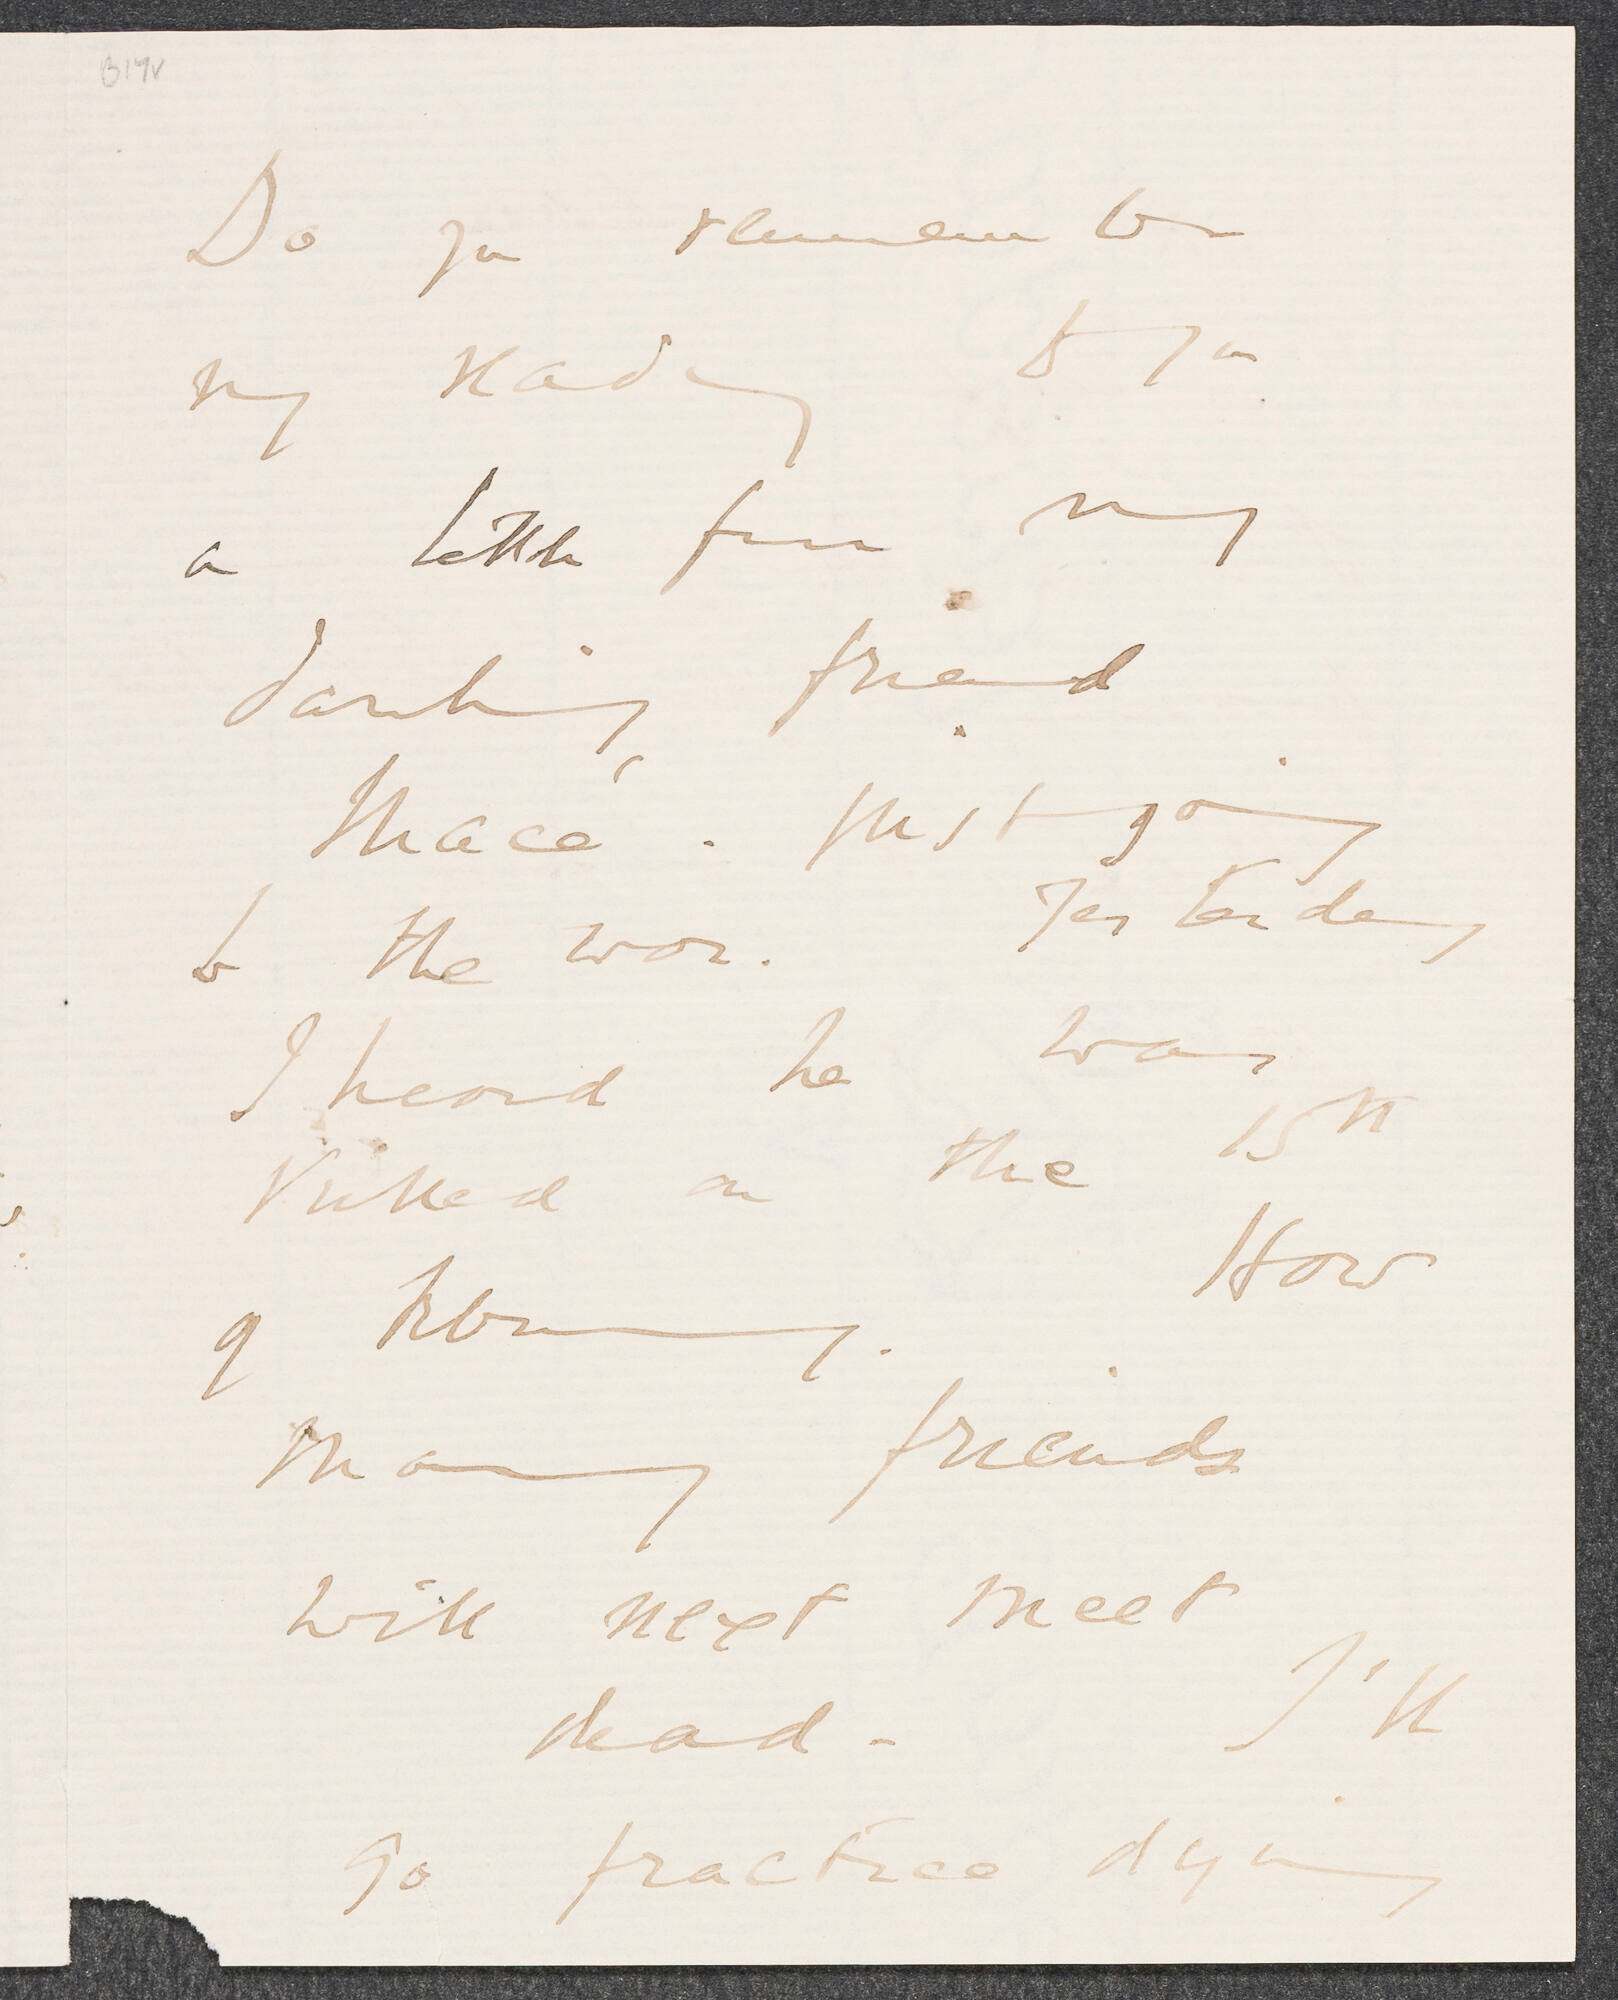 B17V
Do you remember
my reading to you
a little from my
darling friend
Macé. just going
to the war. Yesterday
I heard he was
killed on the 15th
of February. How
many friends
will next meet
dead - I'll
go practice dying